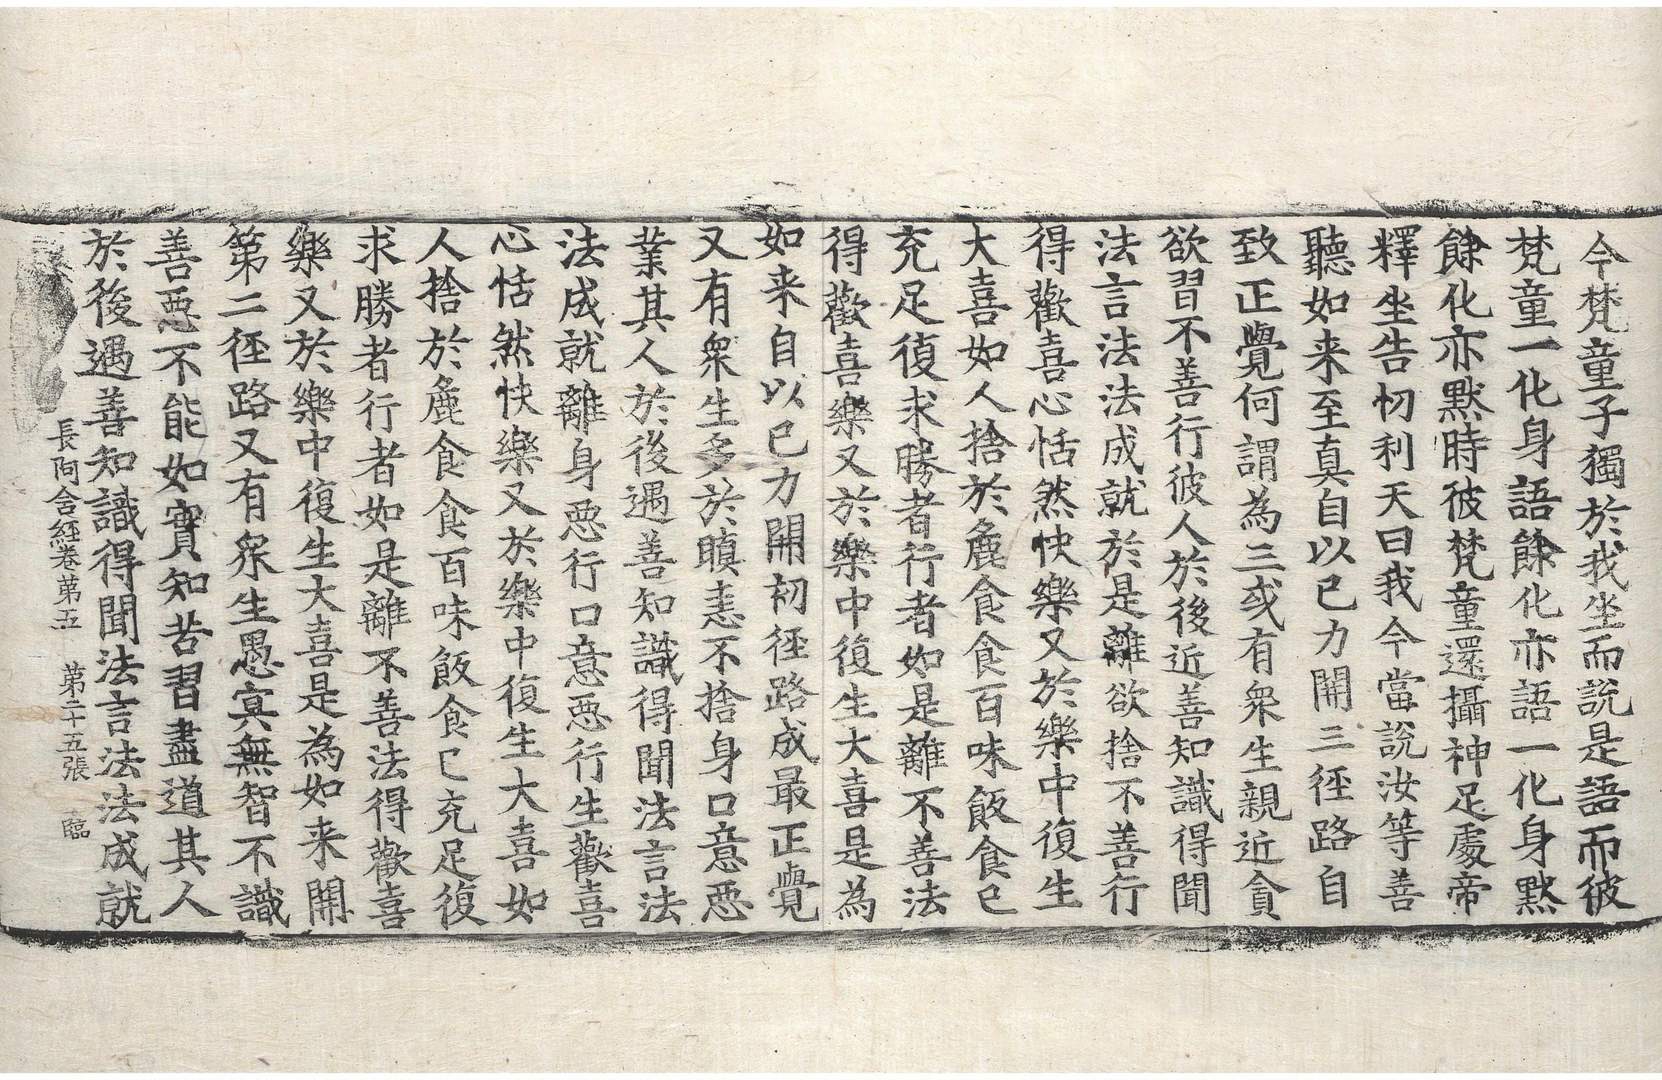 今梵童子獨於我坐而說是語而彼
梵童一化身語餘化亦語一化身默
餘化亦默時彼梵童還攝神足處帝
釋坐告忉利天曰我今當說汝等善
聽如来至真自以已力開三徑路自
致正覺何謂為三或有衆生親近貪
欲習不善行彼人於後近善知識得聞
法言法法成就於是離欲捨不善行
得歡喜心恬然快樂又於樂中復生
大喜如人捨於麁食食百味飯食已
充足復求勝者行者如是離不善法
得歡喜樂又於樂中復生大喜是為
如来自以已力開初徑路成最正覺
又有衆生多於瞋恚不捨身口意惡
業其人於後遇善知識得聞法言法
法成就離身惡行口意惡行生歡喜
心恬然快樂又於樂中復生大喜如
人捨於麁食食百味飯食已充足復
求勝者行者如是離不善法得歡喜
樂又於樂中復生大喜是為如来開
第二徑路又有衆生愚冥無智不識
善惡不能如實知苦習盡道其人
於後遇善知識得聞法言法法成就
長阿含經卷第五 第二十五張 臨